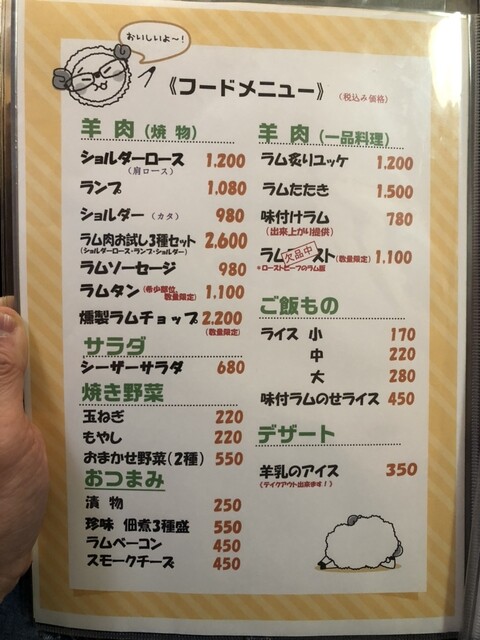 おいしいよ～!
《フードメニュー》 (税込み価格)
羊肉(焼物)
ショルダーロース 1,200
(肩ロース)
ランプ 1,080
ショルダー (カタ) 980
ラム肉お試し3種セット 2,600
(ショルダーロース・ランプ・ショルダー)
ラムソーセージ 980
ラムタン (希少部位 数量限定) 1,100
燻製ラムチョップ 2,200
(数量限定)
サラダ
シーザーサラダ 680
焼き野菜
玉ねぎ 220
もやし 220
おまかせ野菜(2種) 550
おつまみ
漬物 250
珍味 佃煮3種盛 550
ラムベーコン 450
スモークチーズ 450
羊肉(一品料理)
ラム炙りユッケ 1,200
ラムたたき 1,500
味付けラム 780
(出来上がり提供)
ラム 欠品中 スト (数量限定) 1,100
*ローストビーフのラム版
ご飯もの
ライス 小 170
中 220
大 280
味付ラムのせライス 450
デザート
羊乳のアイス 350
(テイクアウト出来ます!)